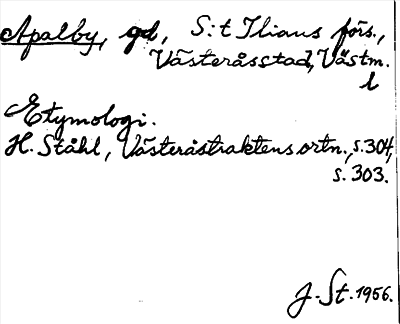 Apalby, gd, S:t Ilians förs.,
Västeråsstad, Västm.
l
Etymologi.
H. Ståhl, Västeråstraktens ortn., s. 304,
s. 303.
J. St. 1956.